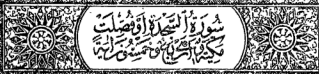 سورة السجدة او فصلت
مكية وهي ثلاث وخمسون اية